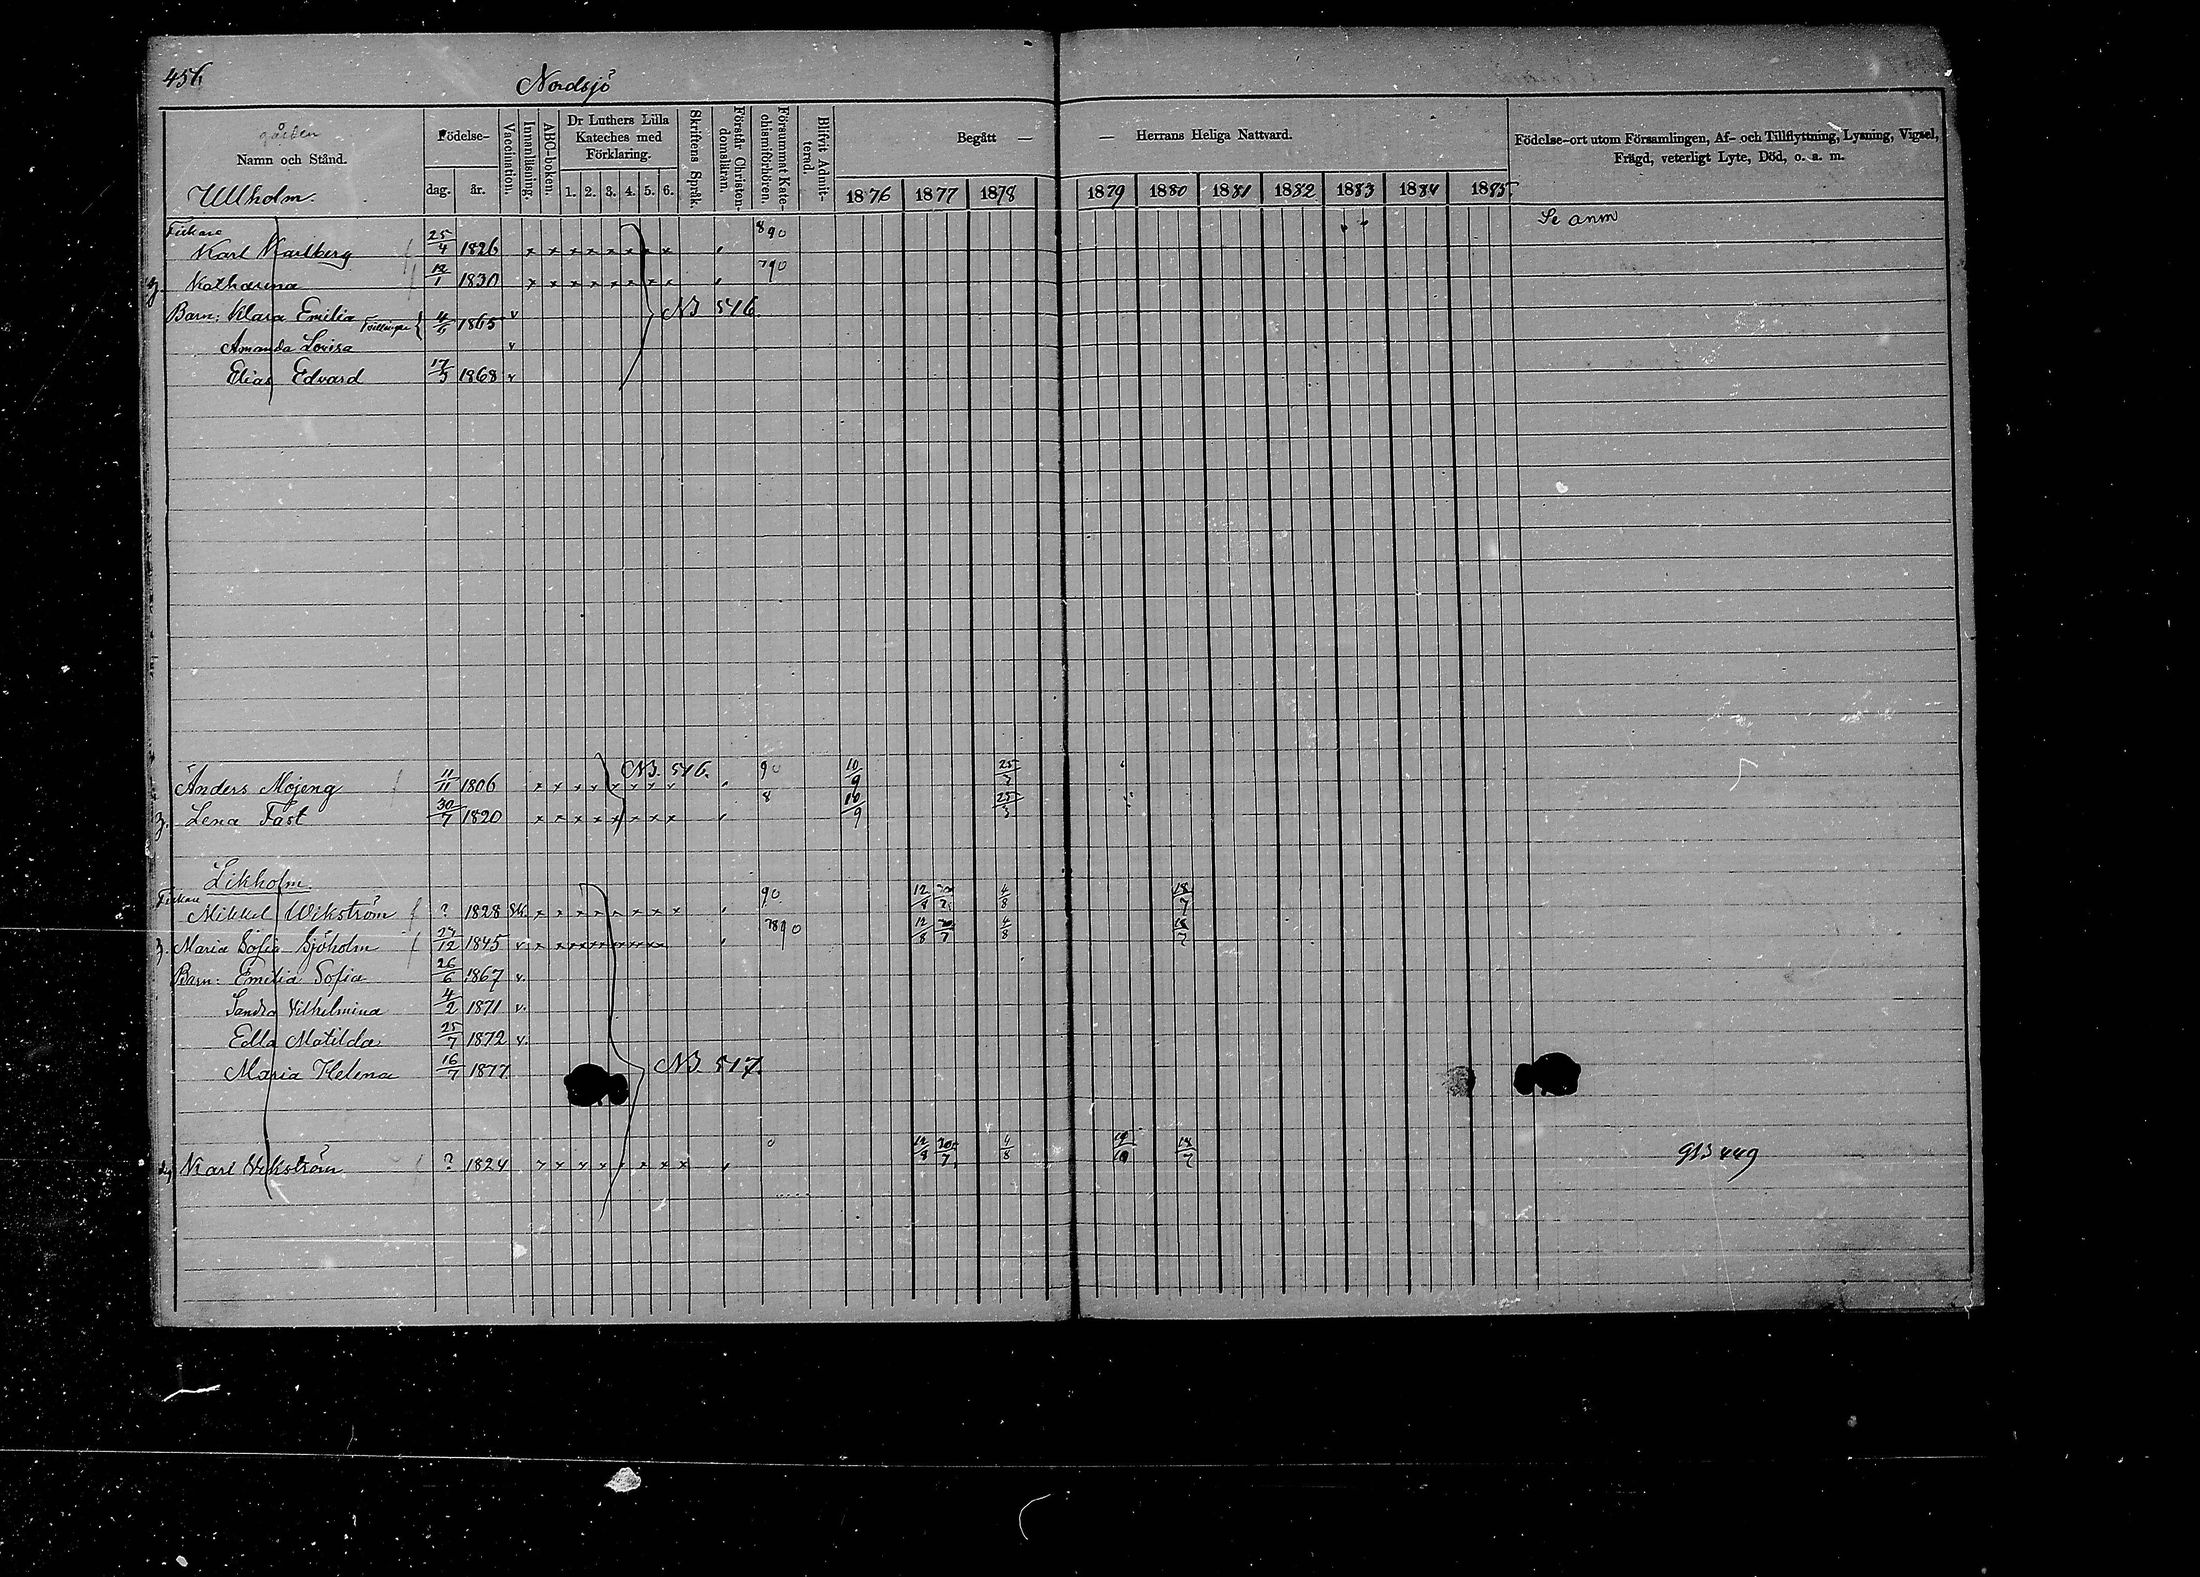 456
Nordsjö
gården
Namn och Stånd.
Födelse-
dag. år.
Vaccination.
Innanläsning.
ABC-boken.
Dr Luthers Lilla Kateches med Förklaring.
1. 2. 3. 4. 5. 6.
Skriftens Språk.
Förstår Christendomsläran.
Försummat Katechismiförhören.
Blifvit Admitterad.
Begått — — Herrans Heliga Nattvard.
1876 1877 1878 1879 1880 1881 1882 1883 1884 1885
Födelse-ort utom Församlingen, Af- och Tillflyttning, Lysning, Vigsel, Frägd, veterligt Lyte, Död, o. a. m.
Ullholm.
Fiskare
Karl Karlberg 25/4 1826 x x x x x x x x 890 Se anm
Katharina 12/1 1830 x x x x x x x x 790
Barn: Klara Emilia Tvillingar 4/6 1865 v NB 516.
Amanda Lovisa v
Elias Edvard 17/3 1868 v
Anders Mojeng 11/11 1806 x x x x x x x x NB. 516. 90 10/9 25/3
Lena Fast 30/7 1820 x x x x x x x x 8 10/9 25/3
Likholm
Mikkel Wikström ? 1828 x x x x x x x x 90 12/8 4/8 18/7
Maria Sofia Sjöholm 27/12 1845 v x x x x x x x x 7890 12/8 20/7 4/8 18/7
Barn: Emilia Sofia 26/6 1867 v.
Sandra Vilhelmina 4/2 1871 v.
Edla Matilda 25/7 1872 v.
Maria Helena 16/7 1877. NB. 517.
Karl Vikström ? 1824 x x x x x x x x 0 12/8 20/7 4/8 18/7 449